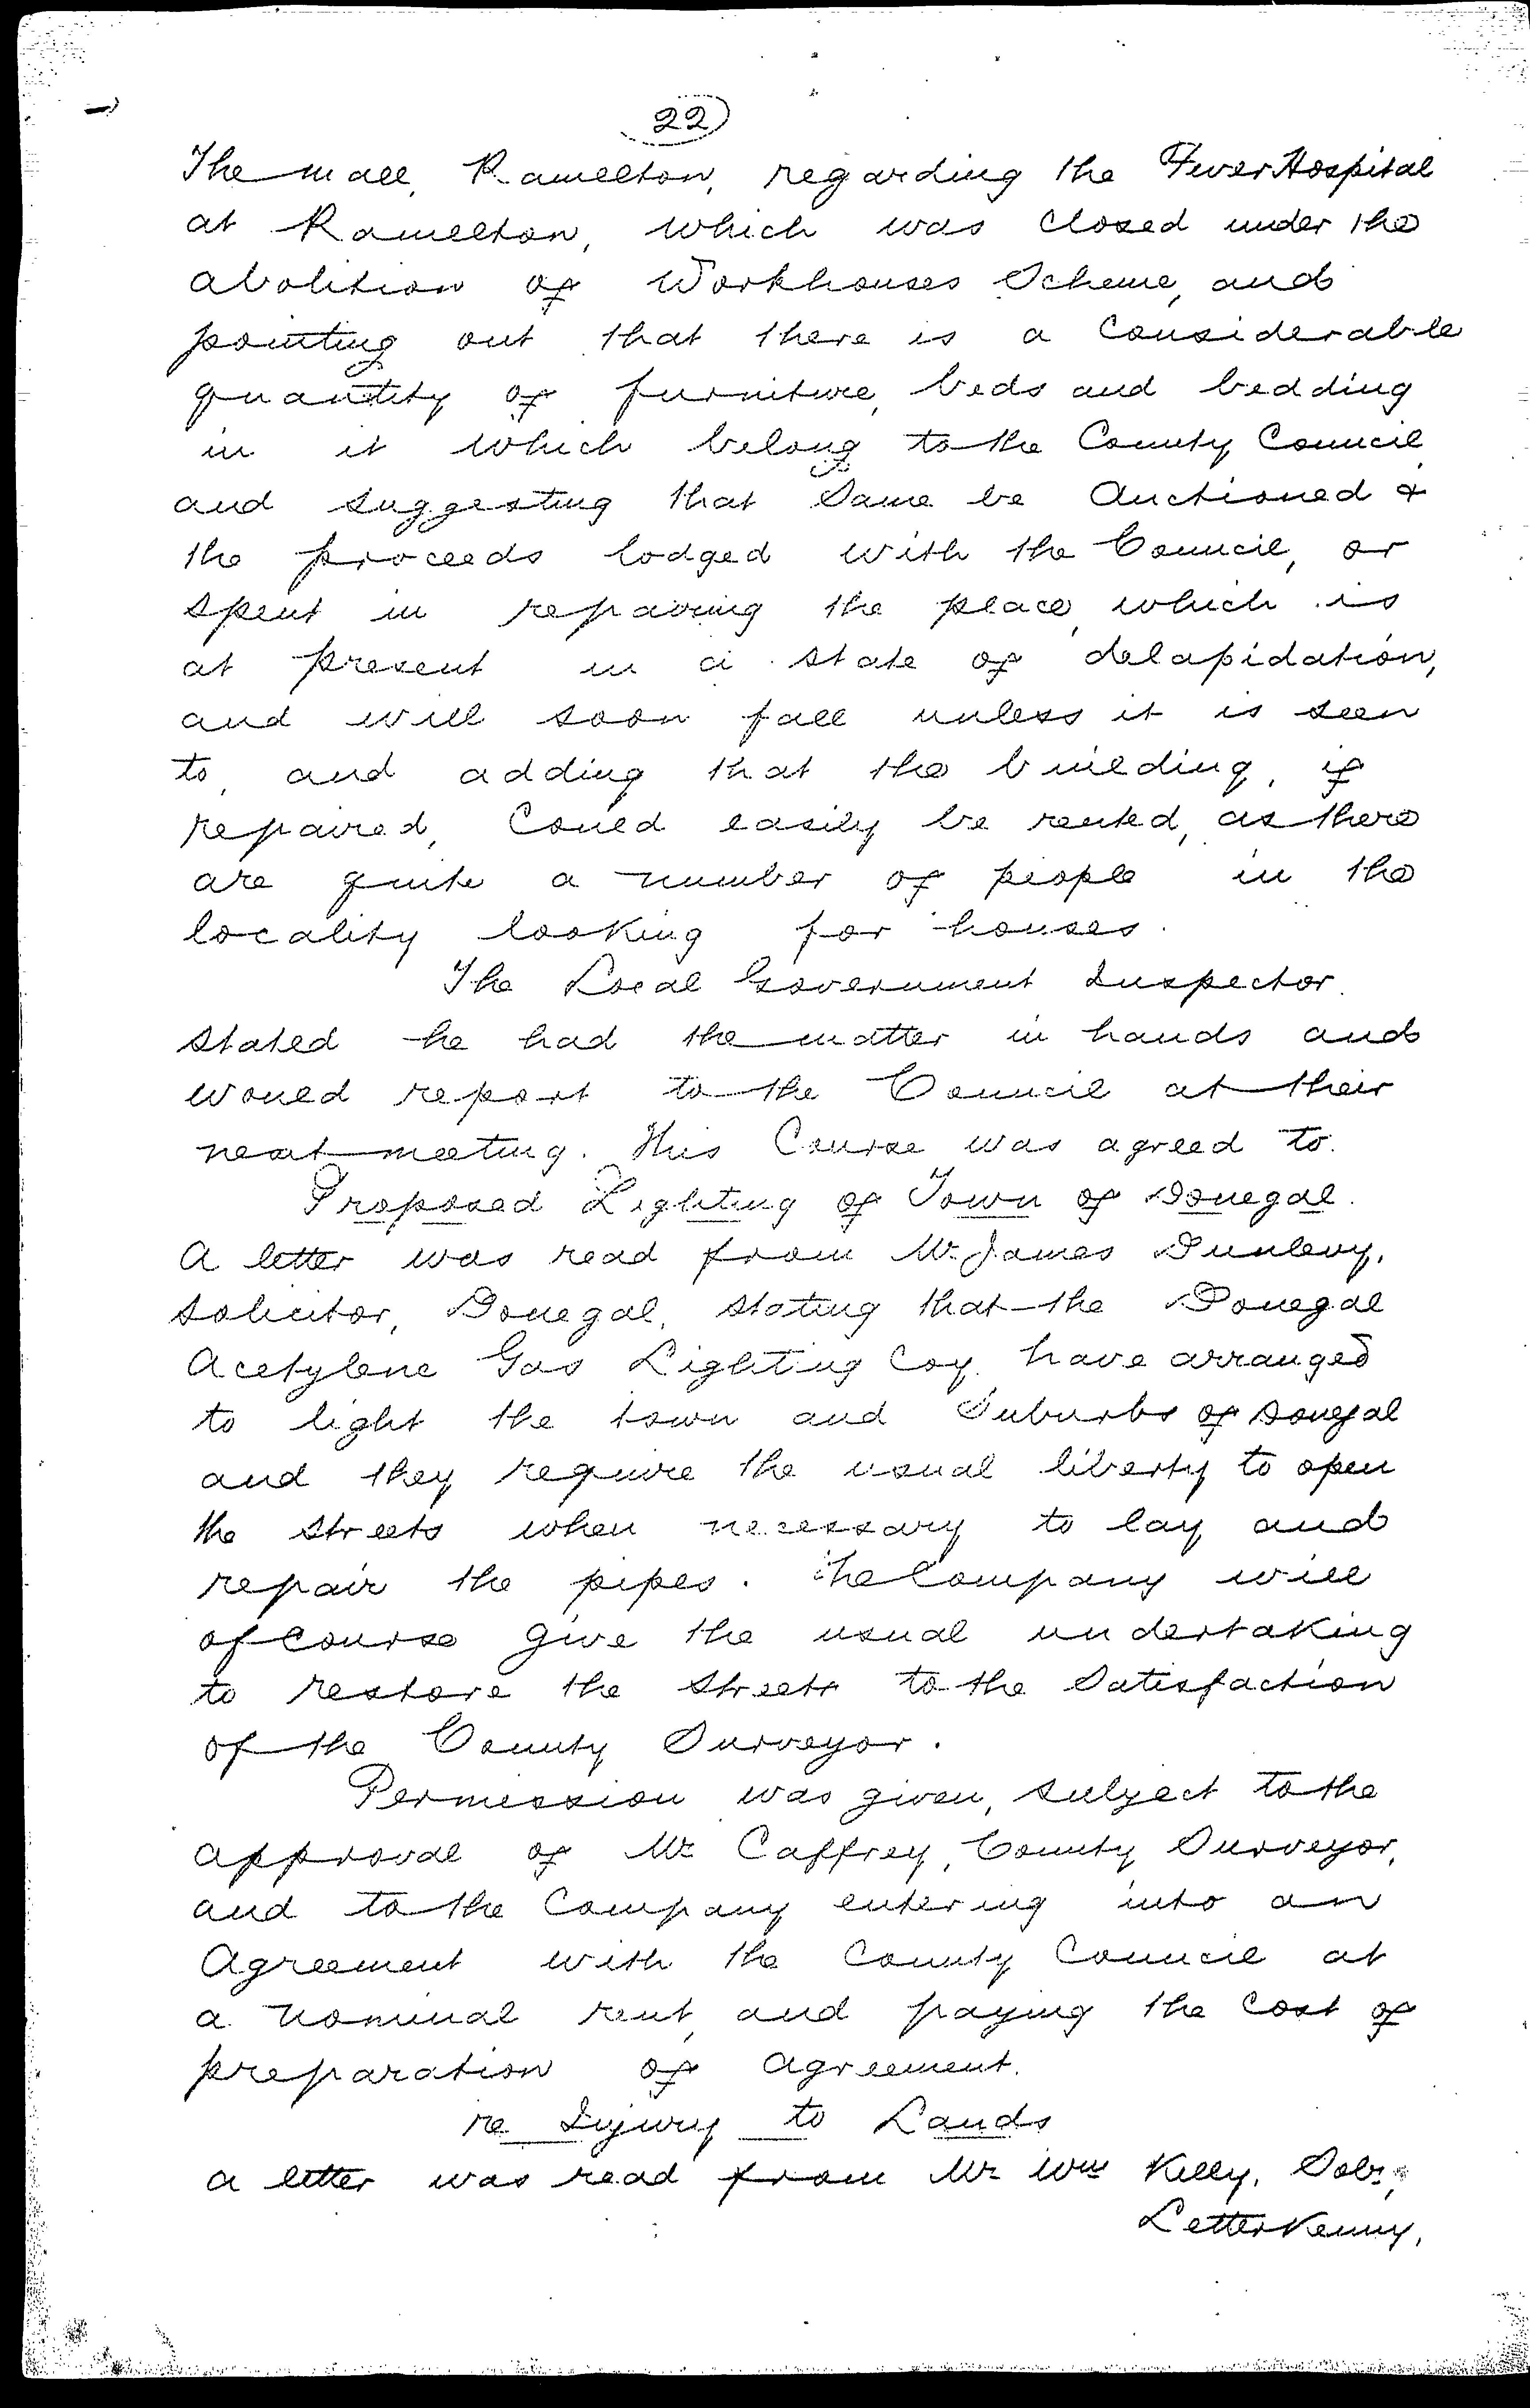 22
The mall, Ramelton, regarding the Fever Hospital
at Ramelton, which was closed under the
abolition of Workhouses Scheme, and
pointing out that there is a Considerable
quantity of furniture, beds and bedding
in it which belong to the County Council
and suggesting that Same be Auctioned &
the proceeds lodged with the Council, or
spent in repairing the place, which is
at present in a state of delapidation,
and will soon fall unless it is seen
to, and adding that the building, if
repaired, Could easily be rented, as there
are quite a number of people in the
locality looking for houses.
The Local Government Inspector
stated he had the matter in hands and
would report to the Council at their
next meeting. This Course was agreed to.
Proposed Lighting of Town of Donegal.
A letter was read from Mr. James Dunlevy,
Solicitor, Donegal, stating that the Donegal
Acetylene Gas Lighting Coy. have arranged
to light the town and Suburbs of Donegal
and they require the usual liberty to open
the streets when necessary to lay and
repair the pipes. The Company will
of course give the usual undertaking
to restore the streets to the Satisfaction
of the County Surveyor.
Permission was given, subject to the
approval of Mr Caffrey, County Surveyor,
and to the Company entering into an
Agreement with the County Council at
a nominal rent, and paying the Cost of
preparation of Agreement.
re Injury to Lands
a letter was read from Mr Wm Kelly, Solr.,
Letterkenny,